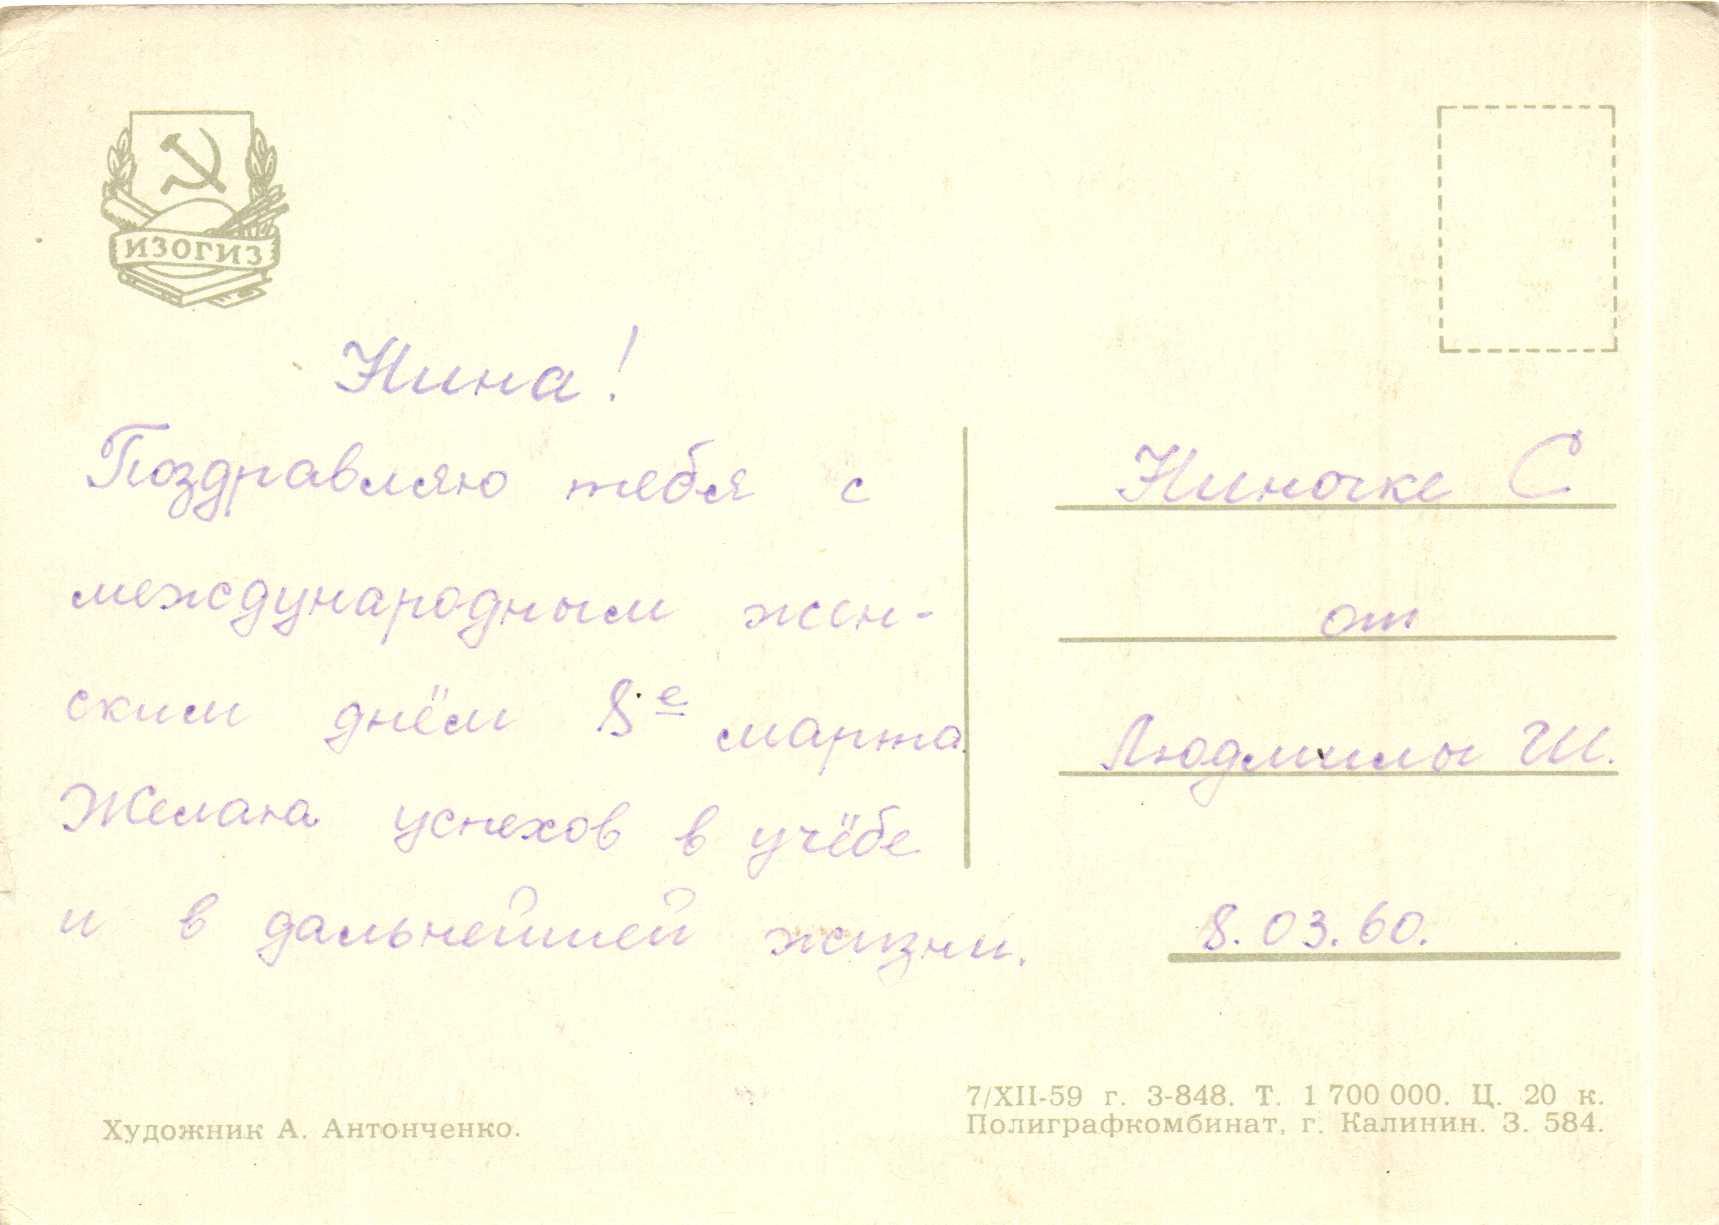 ИЗОГИЗ
Нина!
Поздравляю тебя с
международным жен-
ским днём 8е марта.
Желаю успехов в учёбе
и в дальнейшей жизни.
Ниночке С
от
Людмилы Ш.
8.03.60.
Художник А. Антонченко.
7/XII-59 г. З-848. Т. 1 700 000. Ц. 20 к.
Полиграфкомбинат, г. Калинин. З. 584.